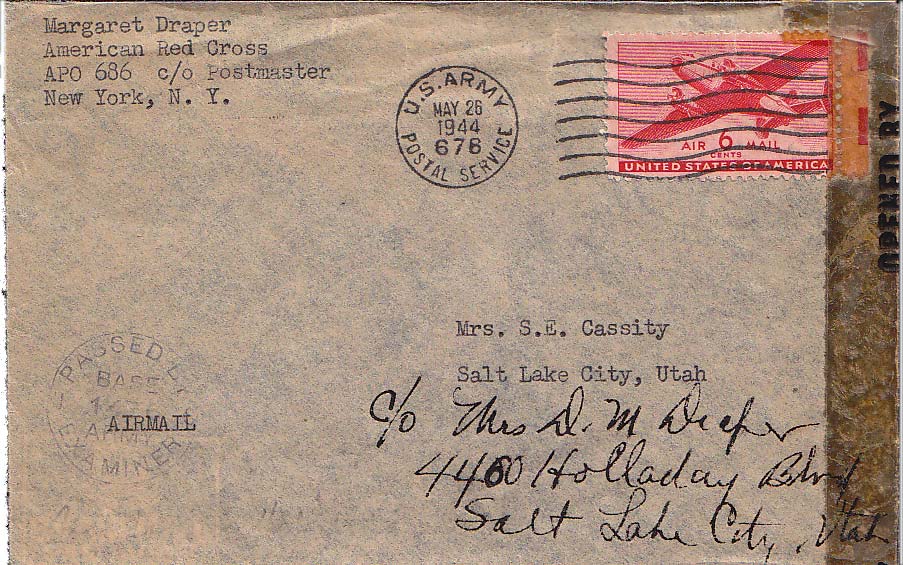 Margaret Draper
American Red Cross
APO 686 c/o Postmaster
New York, N. Y.
U.S. ARMY
MAY 26
1944
678
POSTAL SERVICE
AIR 6 MAIL
CENTS
UNITED STATES OF AMERICA
OPENED BY
Mrs. S.E. Cassity
Salt Lake City, Utah
c/o Mrs D. M Draper
4460 Holladay Blvd
Salt Lake City, Utah
PASSED
BASE
ARMY
EXAMINER
AIRMAIL